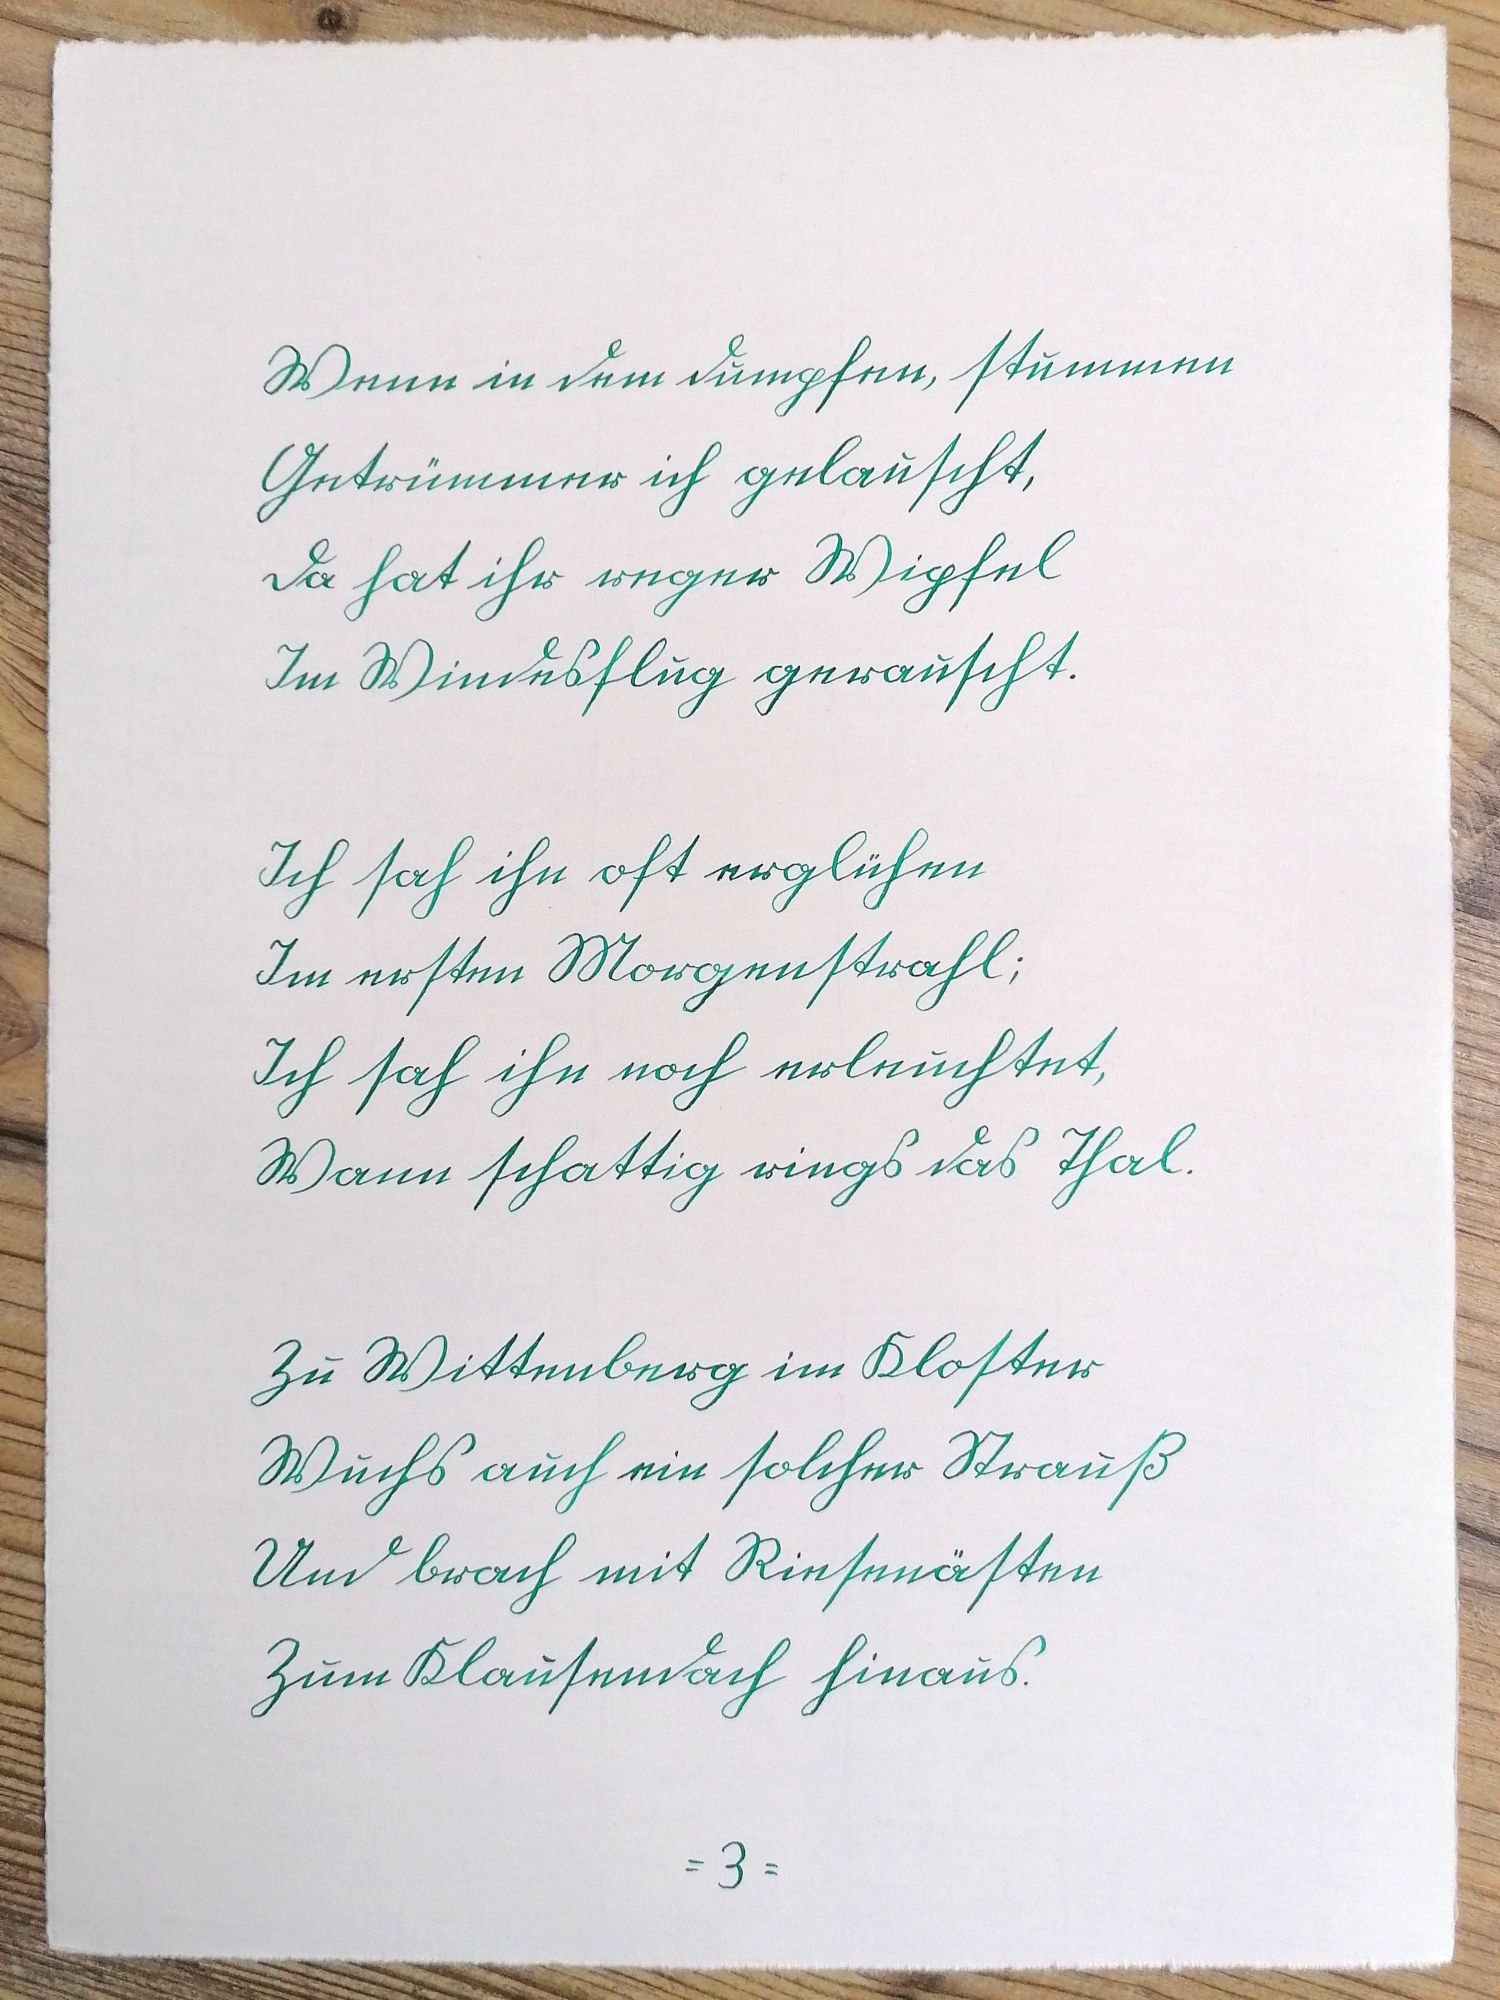 Wenn in dem dumpfen, stummen
Getrümmer ich gelauscht,
Da hat ihr reger Wipfel
Im Windesflug gerauscht.
Ich sah ihn oft erglühen
Im ersten Morgenstrahl;
Ich sah ihn noch erleuchtet,
Wann schattig rings das Thal.
Zu Wittenberg im Kloster
Wuchs auch ein solcher Strauß
Und brach mit Riesenästen
Zum Klausendach hinaus.
= 3 =